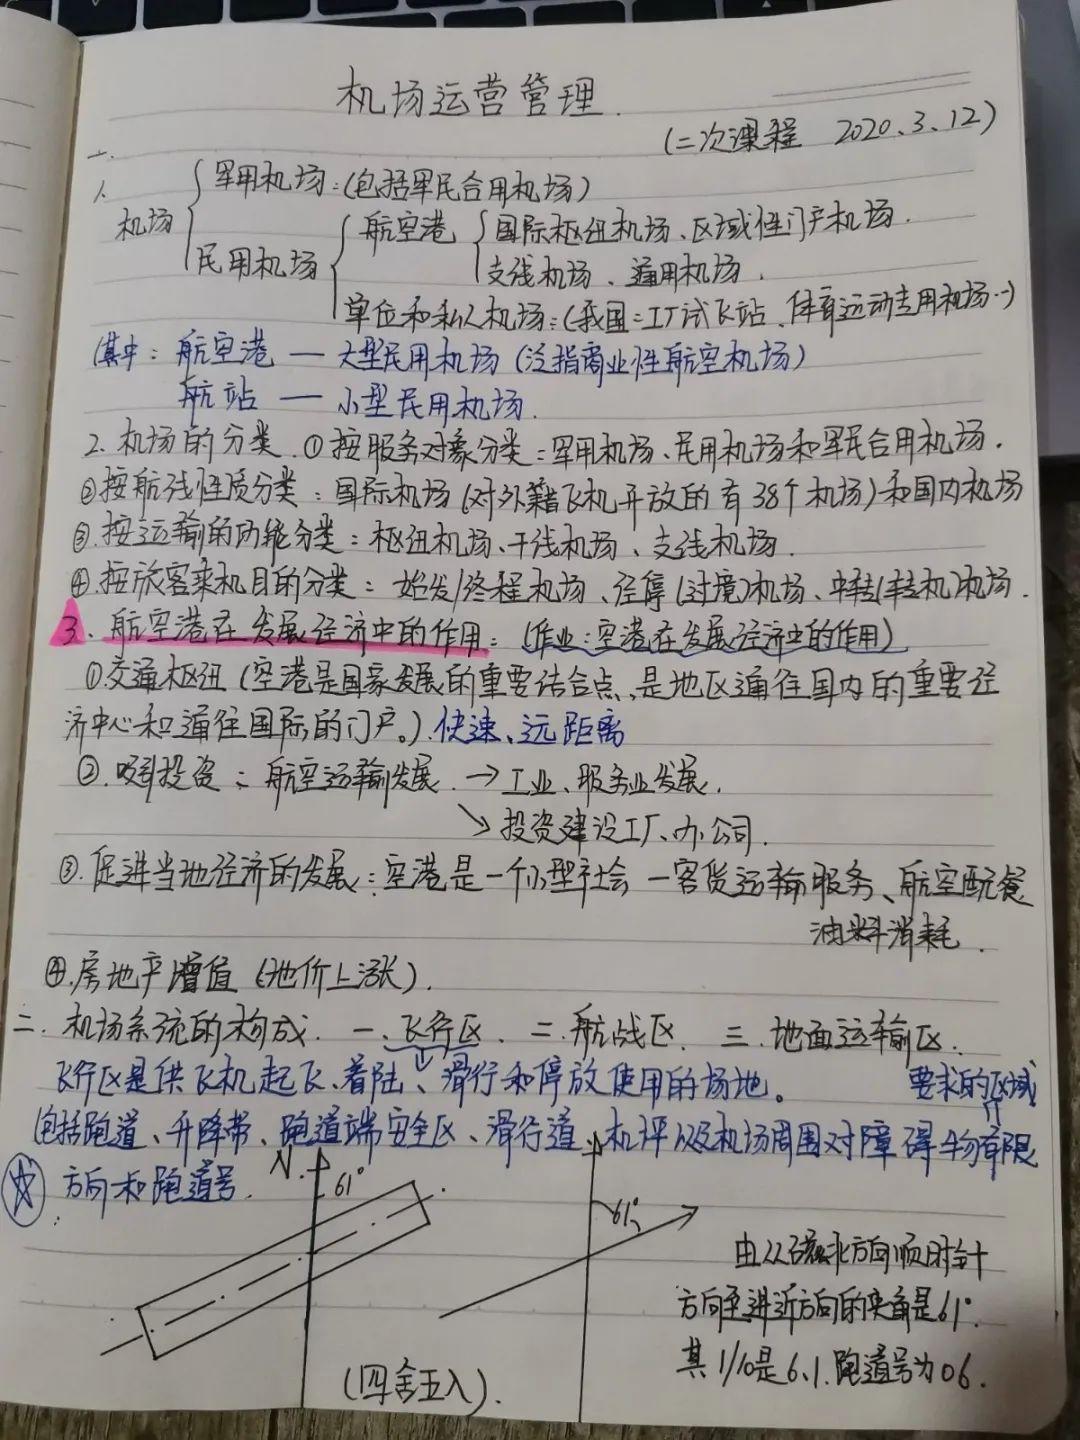 机场运营管理.
(二次课程 2020.3.12)
一.
1.
机场
军用机场:(包括军民合用机场)
民用机场
航空港
国际枢纽机场、区域性门户机场.
支线机场、通用机场.
单位和私人机场:(我国:工厂试飞站、体育运动专用机场…)
(其中: 航空港 — 大型民用机场 (泛指商业性航空机场)
航站 — 小型民用机场.
2. 机场的分类. ①按服务对象分类:军用机场、民用机场和军民合用机场.
②按航线性质分类:国际机场(对外籍飞机开放的有38个机场)和国内机场
③.按运输的功能分类:枢纽机场、干线机场、支线机场.
④按旅客乘机目的分类: 始发/终程机场、经停(过境)机场、中转(转机)机场.
3. 航空港在发展经济中的作用:(作业:空港在发展经济中的作用)
①交通枢纽(空港是国家发展的重要结合点、是地区通往国内的重要经
济中心和通往国际的门户。).快速、远距离
②.吸引投资: 航空运输发展. → 工业、服务业发展.
↘ 投资建设工厂、办公司.
③.促进当地经济的发展:空港是一个小型社会 — 客货运输服务、航空配餐
油料消耗.
④.房地产增值(地价上涨).
二. 机场系统的构成. 一.飞行区. 二.航战区. 三.地面运输区.
飞行区是供飞机起飞、着陆、滑行和停放使用的场地。 要求的区域
包括跑道、升降带、跑道端安全区、滑行道、机坪以及机场周围对障碍物有限
☆ 方向和跑道号.
N. 61°
61°
由从磁北方向顺时针
方向至进近方向的夹角是61°.
其1/10是6.1.跑道号为06.
(四舍五入).